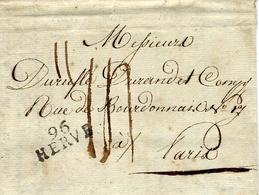 Messieurs
Durand et Comp.
Rue de Bourdonnais No. 17
à
Paris
96
HERVE